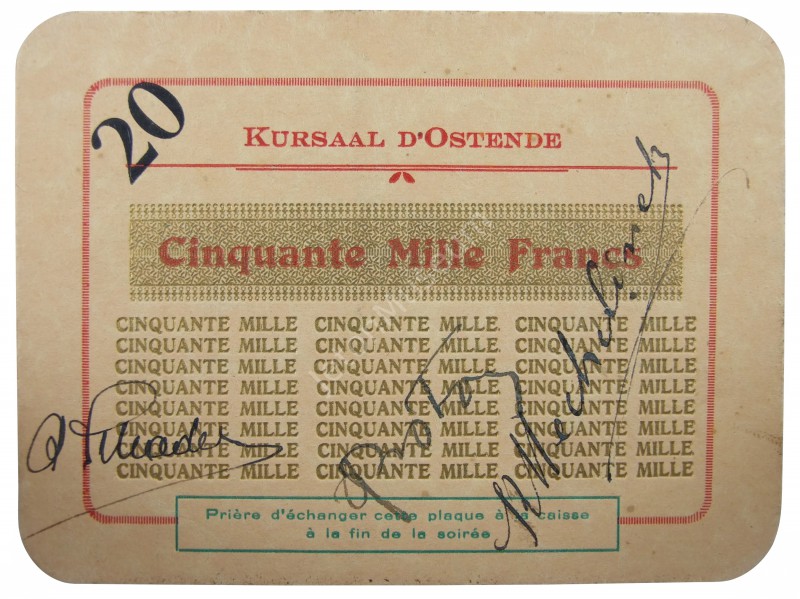 20
KURSAAL D'OSTENDE
Cinquante Mille Francs
CINQUANTE MILLE CINQUANTE MILLE CINQUANTE MILLE
CINQUANTE MILLE CINQUANTE MILLE CINQUANTE MILLE
CINQUANTE MILLE CINQUANTE MILLE CINQUANTE MILLE
CINQUANTE MILLE CINQUANTE MILLE CINQUANTE MILLE
CINQUANTE MILLE CINQUANTE MILLE CINQUANTE MILLE
CINQUANTE MILLE CINQUANTE MILLE CINQUANTE MILLE
CINQUANTE MILLE CINQUANTE MILLE CINQUANTE MILLE
CINQUANTE MILLE CINQUANTE MILLE CINQUANTE MILLE
Prière d'échanger cette plaque à la caisse
à la fin de la soirée